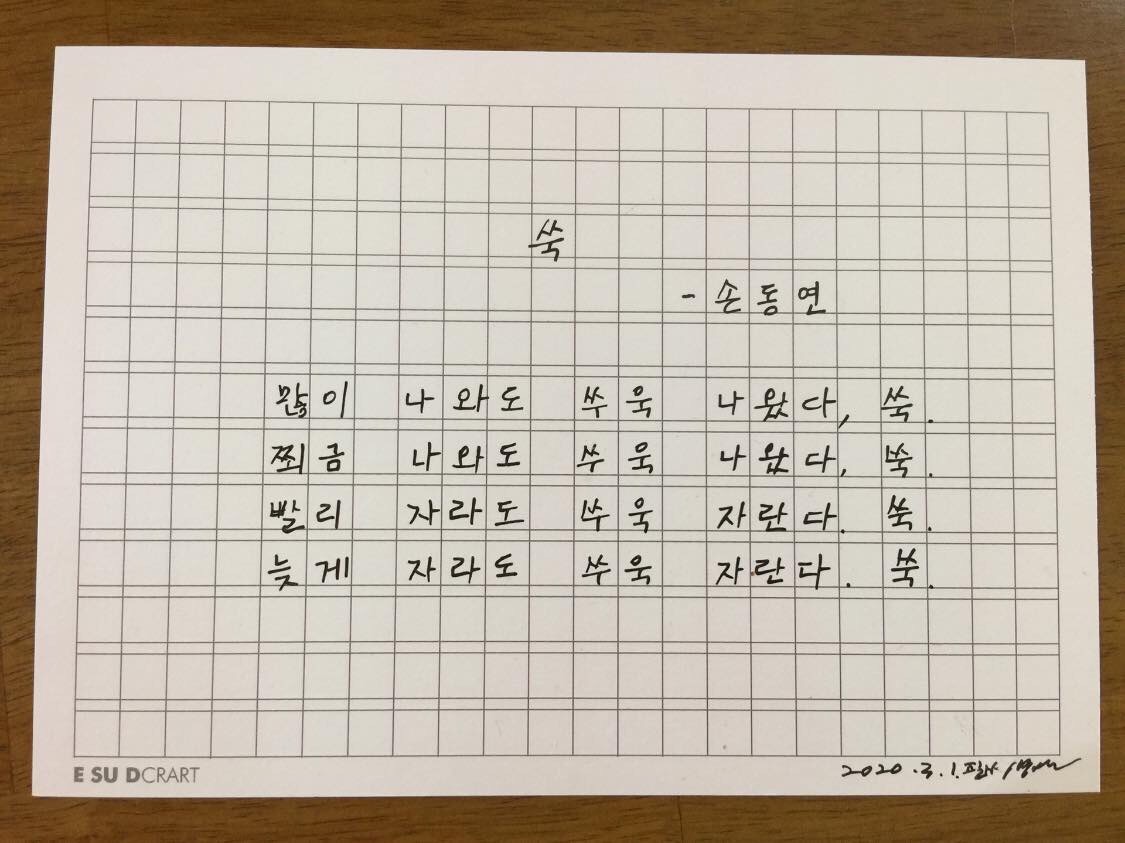 쑥
- 손동연
많이 나와도 쑤욱 나왔다, 쑥.
쬐금 나와도 쑤욱 나왔다, 쑥.
빨리 자라도 쑤욱 자란다. 쑥.
늦게 자라도 쑤욱 자란다. 쑥.
E SU DCRART
2020.3.1. 필사